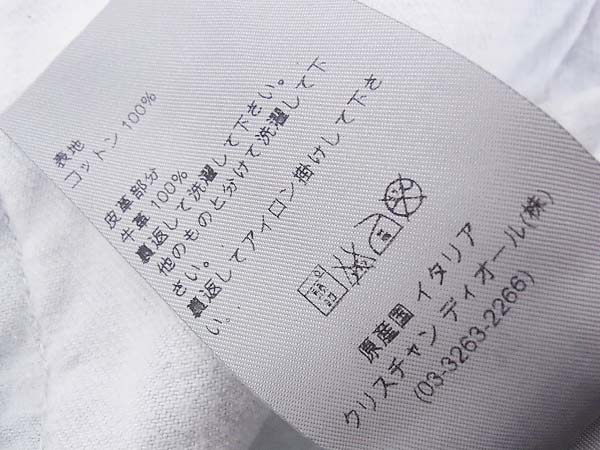 表地
コットン 100%
皮革部分
牛革 100%
裏返して洗濯して下さい。
他のものと分けて洗濯して下
さい。
裏返してアイロン掛けして下さ
い。
原産国 イタリア
クリスチャン ディオール(株)
(03-3263-2266)